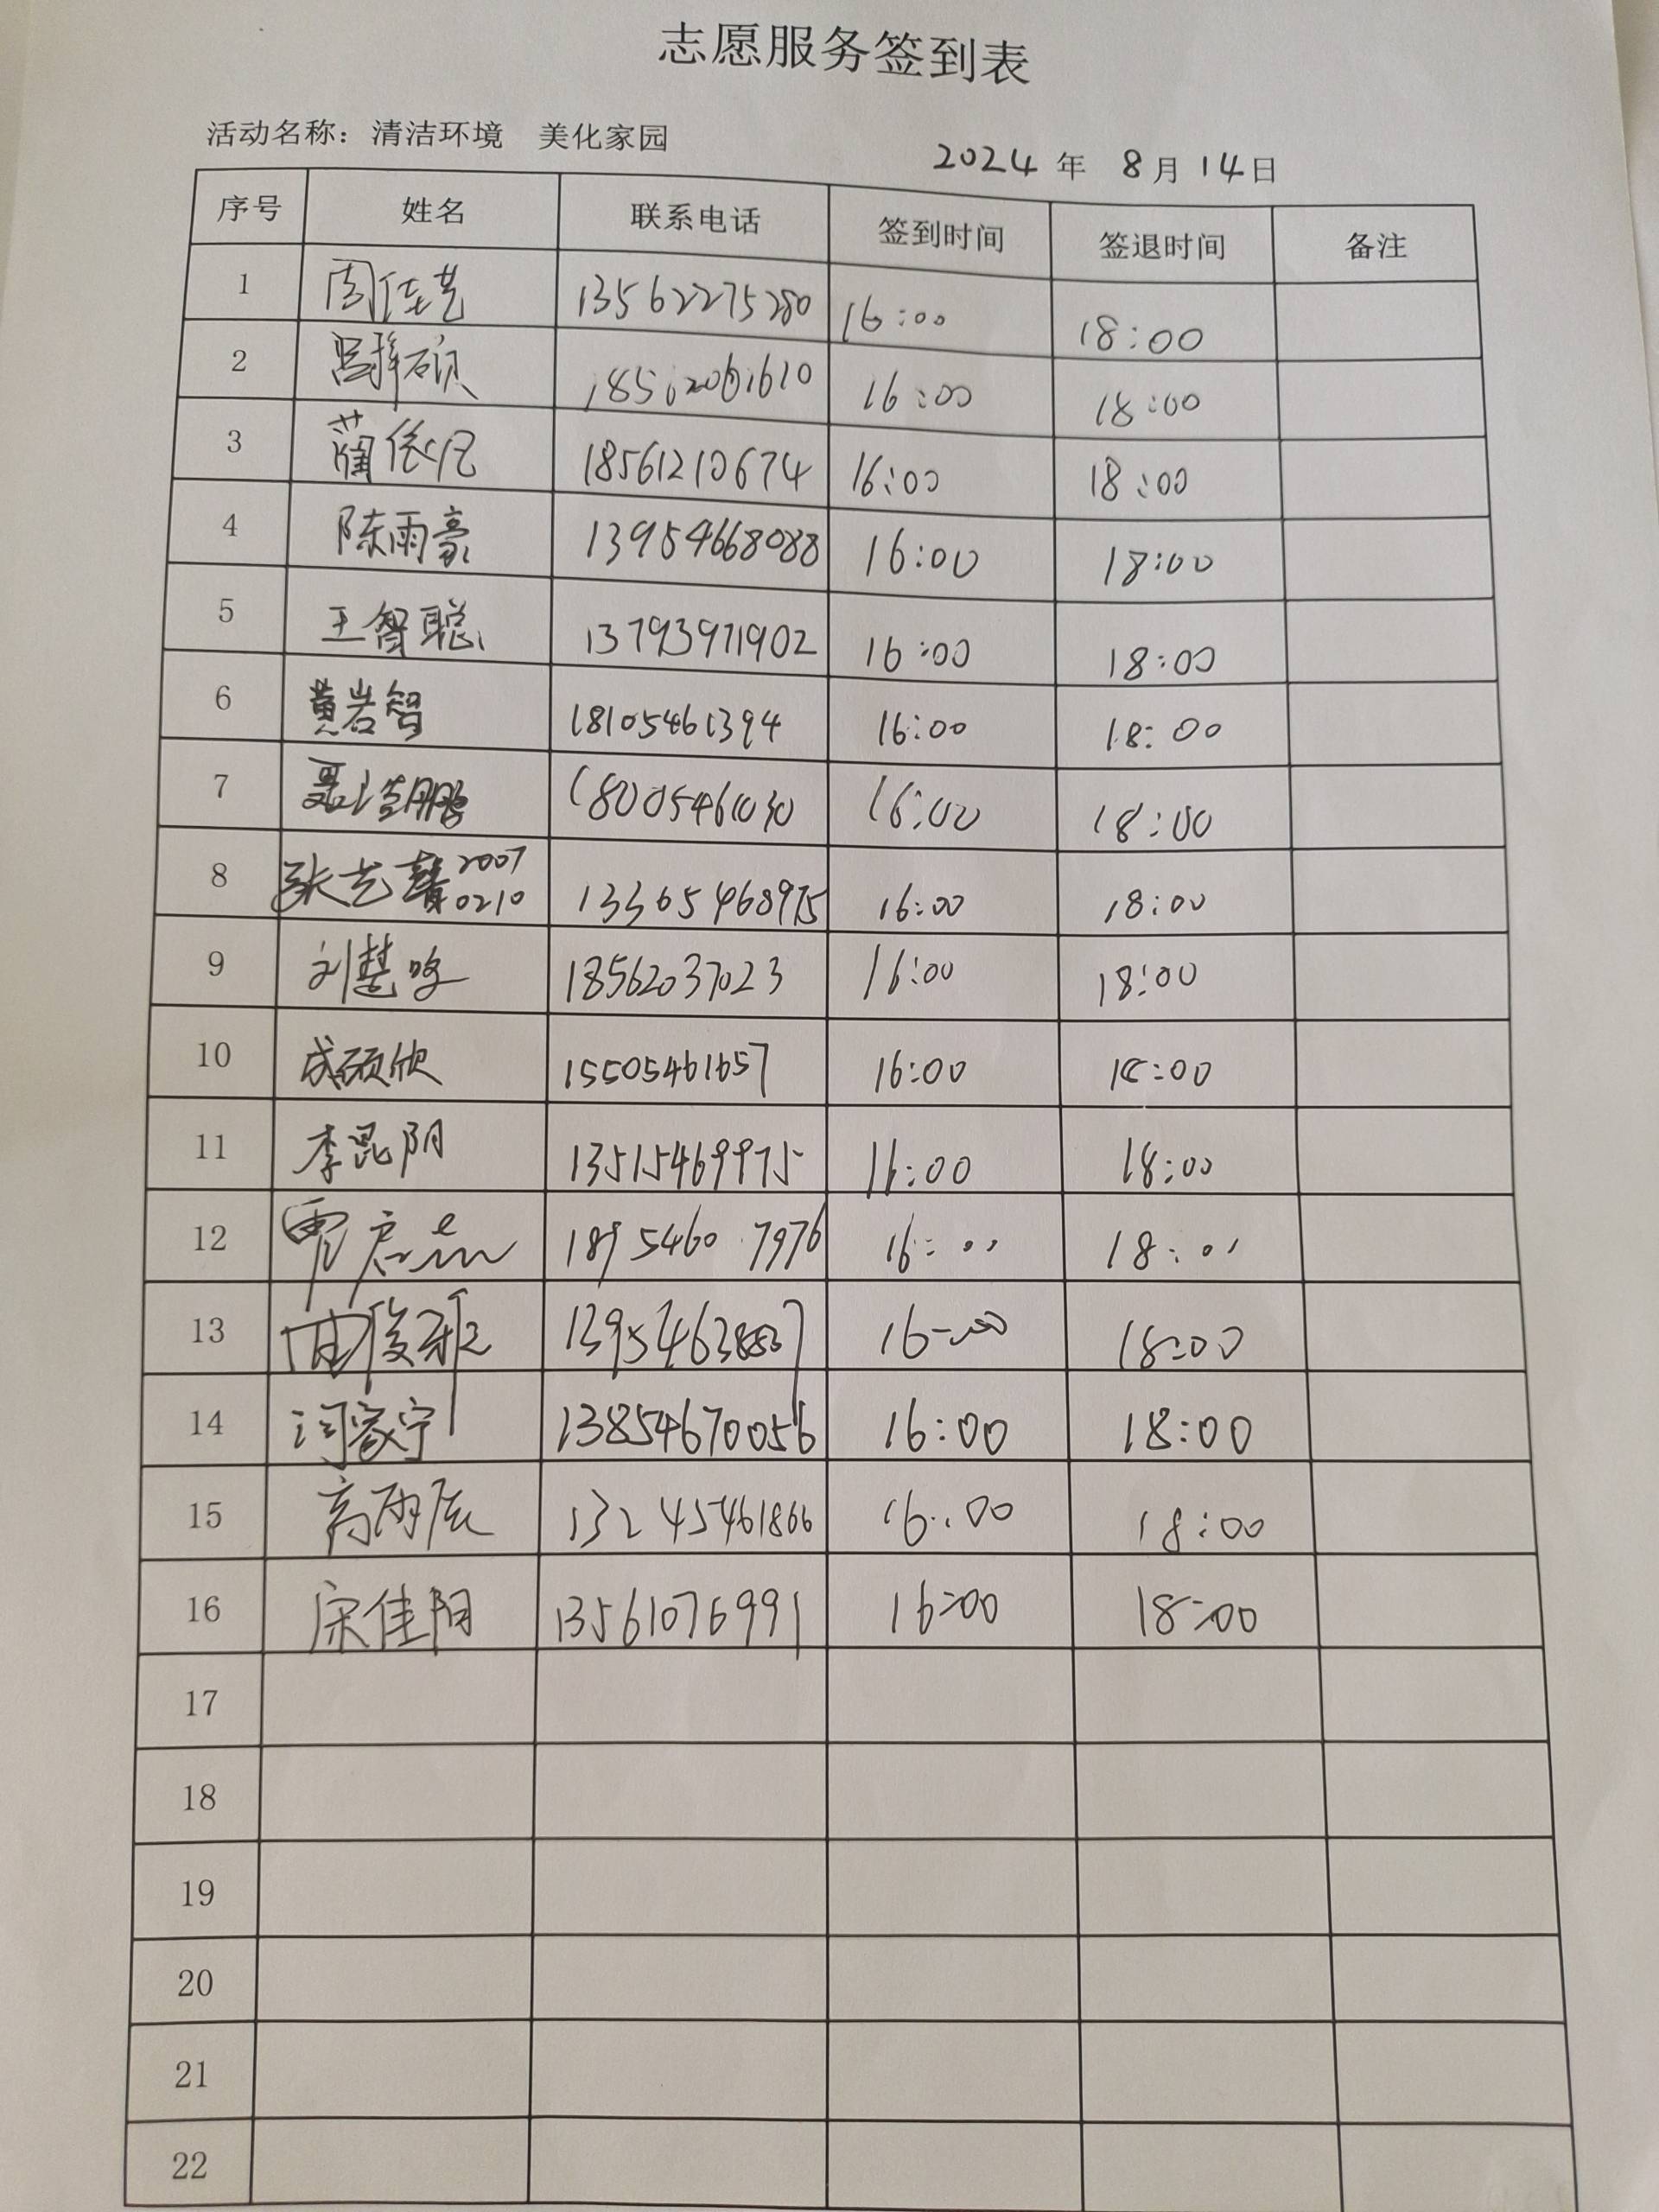 志愿服务签到表
活动名称：清洁环境 美化家园
2024 年 8月 14日
序号 姓名 联系电话 签到时间 签退时间 备注
1 周佳艺 13562275280 16:00 18:00
2 16:00 18:00
3 蔺依凡 18561210674 16:00 18:00
4 陈雨豪 13954668088 16:00 18:00
5 王智聪 13793971902 16:00 18:00
6 黄岩智 18105461394 16:00 18:00
7 18005461030 16:00 18:00
8 张艺馨 2007 0210 13365468975 16:00 18:00
9 18562037023 16:00 18:00
10 成硕欣 15505461657 16:00 18:00
11 李昆阴 13515469975 16:00 18:00
12 18954607976 16:00 18:00
13 16:00 18:00
14 闫家宁 13854670056 16:00 18:00
15 高雨辰 13245461866 16:00 18:00
16 宋佳阳 13561076991 16:00 18:00
17
18
19
20
21
22